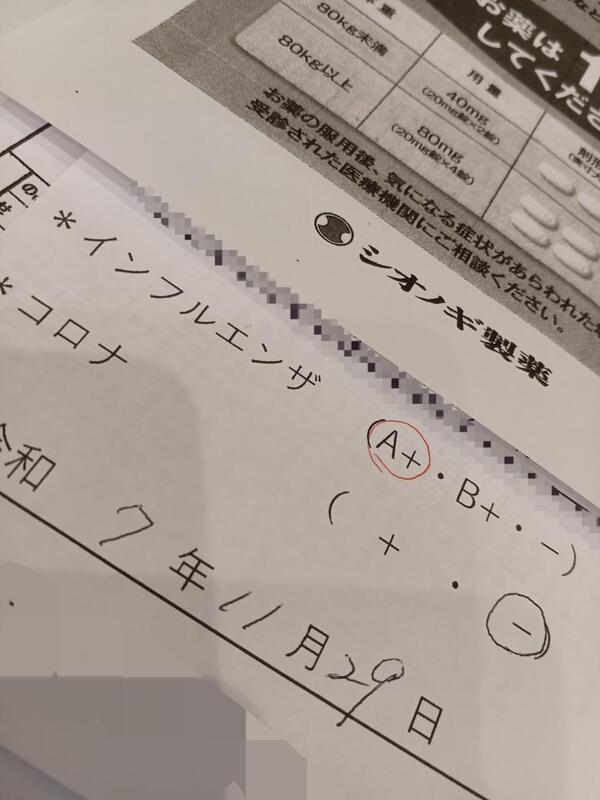 80kg未満
80kg以上
用量
40mg
(20mg錠×2錠)
80mg
(20mg錠×4錠)
お薬は 1
してくださ
お薬の服用後、気になる症状があらわれた
受診された医療機関にご相談ください。
シオノギ製薬
＊インフルエンザ (A+・B+・-)
＊コロナ (+・-)
令和 7年 11月 29日